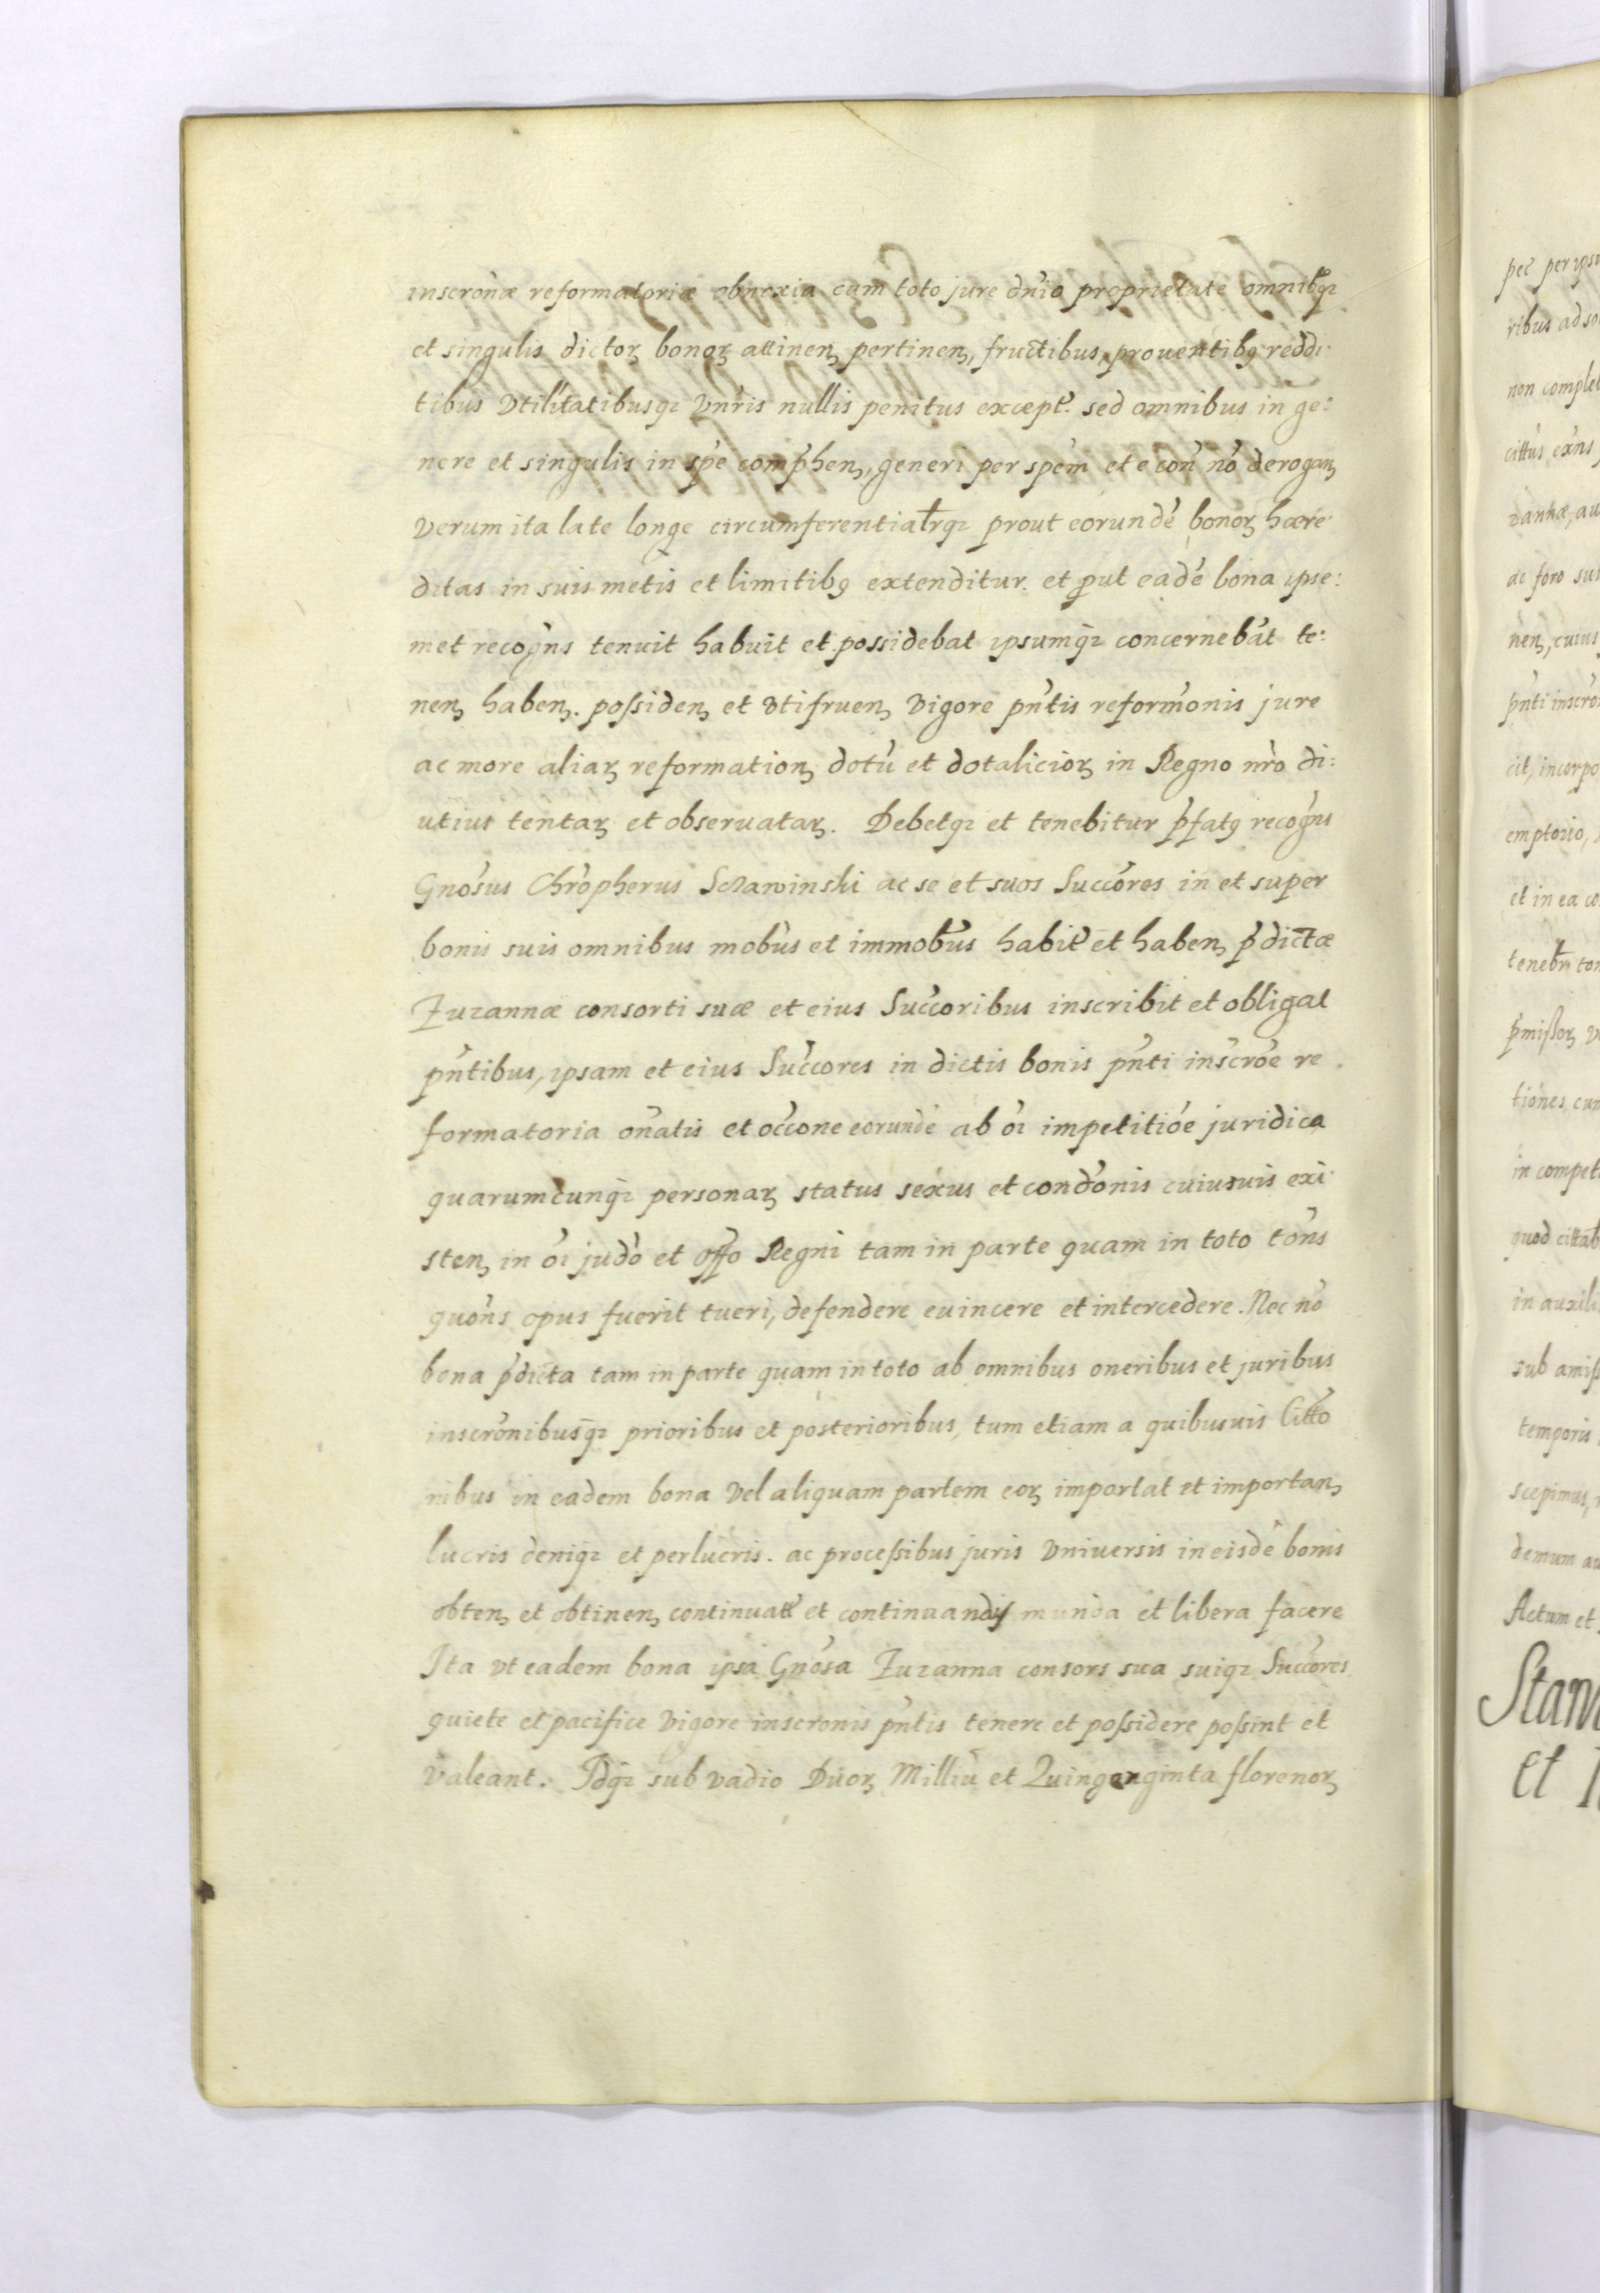 inscronæ reformatoriæ obnoxia cum toto jure dnio proprietate omnibqꝫ
et singulis dictoꝝ bonoꝝ attineñ pertineñ, fructibus, prouentibꝫ reddi
tibus Vtilitatibusqꝫ Vnris nullis penitus except. sed omnibus in ge:
nere et singulis in spe comprhen, generi per spem et e con no derogañ
verum ita late longe circumferentialrqꝫ prout eorunde bonoꝝ hære
ditas in suis metis et limitibꝫ extenditur. et prout eade bona ipse:
met recogns tenuit habuit et possidebat ipsumqꝫ concernebat te:
neñ habeñ. possideñ et Vtifrueñ Vigore pntis reformonis jure
ac more aliaꝝ reformationꝫ dotu et dotalicioꝝ in Regno nro di:
utius tentaꝝ et obseruataꝝ. Debetqꝫ et tenebitur pfatꝫ recogns
Gnosus Chropherus Sczawinski ac se et suos Succores in et super
bonis suis omnibus mobus et immobus habit et habeñ pdictæ
Zuzannæ consorti suæ et eius Succoribus inscribit et obligat
pntibus, ipsam et eius Succores in dictis bonis pnti inscroe re
formatoria onatis et occone eorunde ab oi impetitioe juridica
quarumcunqꝫ personaꝝ status sexus et condonis cuiusuis exi
steñ in oi judo et offo Regni tam in parte quam in toto tons
quons opus fuerit tueri, defendere euincere et intercedere. Nec no
bona pdicta tam in parte quam in toto ab omnibus oneribus et juribus
inscronibusqꝫ prioribus et posterioribus, tum etiam a quibusuis Citto
nibus in eadem bona Vel aliquam partem eoꝝ importat et importañ
lucris deniqꝫ et perlucris. ac processibus juris Vniuersis in eisde bonis
obteñ et obtineñ continuatt et continuandis munda et libera facere
Ita Vt eadem bona ipsa Gnosa Zuzanna consors sua suiqꝫ Succores
quiete et pacifice Vigore inscronis pntis tenere et possidere possint et
Valeant. Idqꝫ sub vadio Duoꝝ Milliu et Quingenginta florenoꝝ